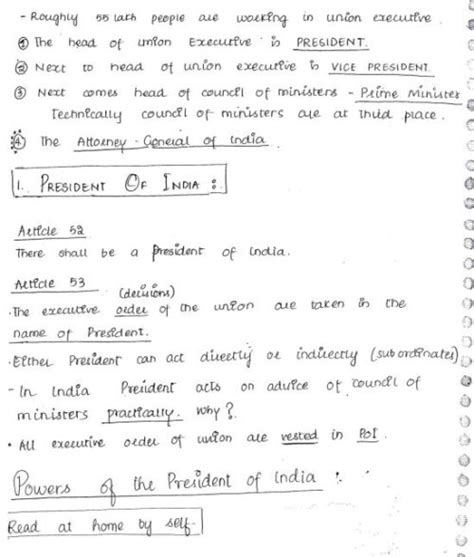 - Roughly 55 lakh people are working in union executive.
① The head of union Executive is PRESIDENT.
② Next to head of union executive is VICE PRESIDENT.
③ Next comes head of council of ministers - Prime Minister
Technically council of ministers are at third place.
④ The Attorney-General of India
1. PRESIDENT OF INDIA :
Article 52
There shall be a President of India.
Article 53
(decisions)
• The executive order of the union are taken in the
name of President.
• Either President can act directly or indirectly (subordinates)
- In India President acts on advice of council of
ministers practically. Why?
• All executive order of union are vested in PoI.
Powers of the President of India :
Read at home by self.